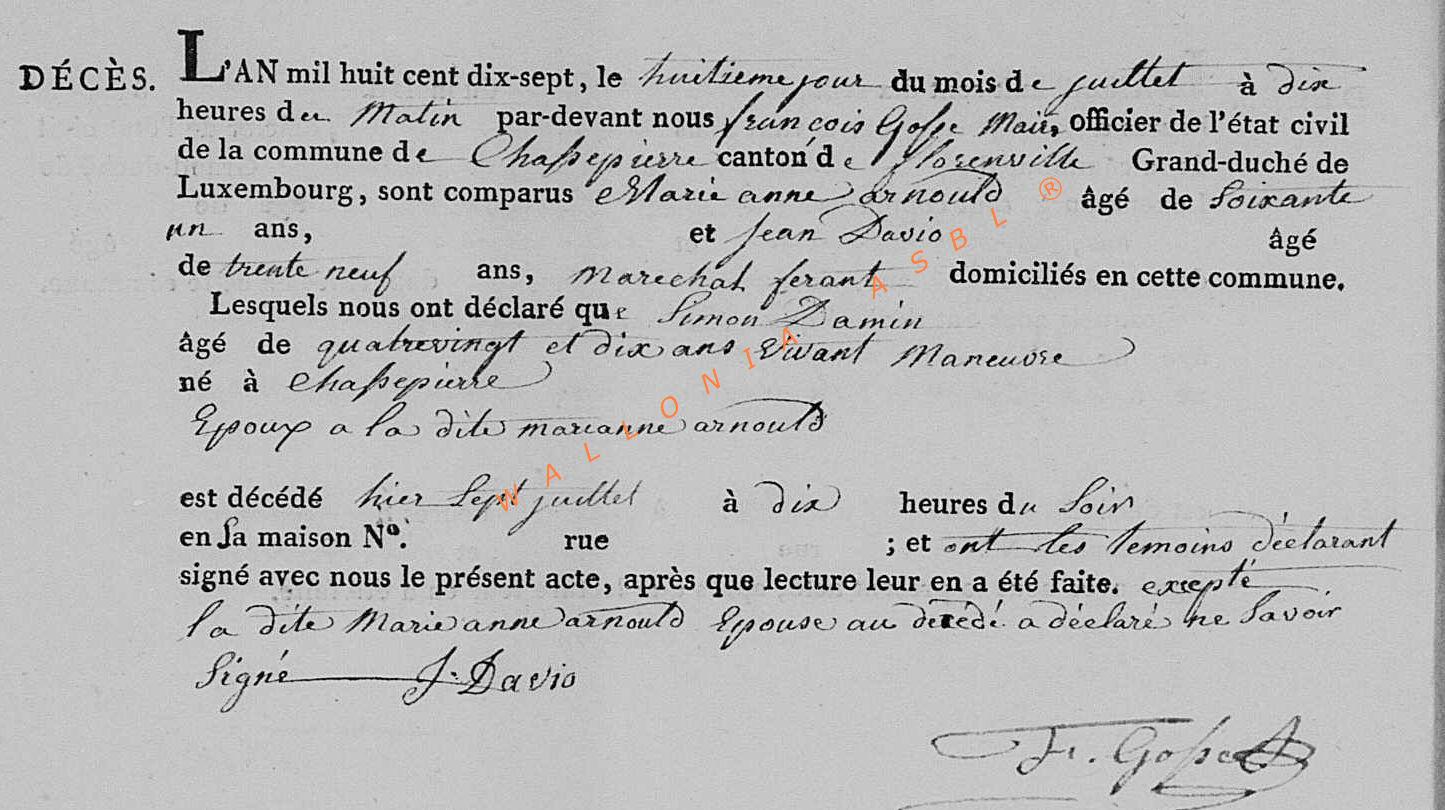 DÉCÈS. L'AN mil huit cent dix-sept, le huitieme jour du mois de juillet à dix
heures du Matin par-devant nous françois Gosse Maire, officier de l'état civil
de la commune de Chassepierre canton de florenville Grand-duché de
Luxembourg, sont comparus Marie anne arnould âgé de Soixante
un ans, et Jean Davio âgé
de trente neuf ans, marechal ferant domiciliés en cette commune.
Lesquels nous ont déclaré que Simon Damin
âgé de quatrevingt et dix ans vivant Maneuvre
né à Chassepierre
Epoux a la dite marianne arnould
est décédé hier Sept juillet à dix heures du Soir
en sa maison Nº. rue ; et ont les temoins déclarant
signé avec nous le présent acte, après que lecture leur en a été faite. excepté
la dite Marie anne arnould Epouse au décédé a déclaré ne Savoir
Signé J. Davio
Fr. Gosse
WALLONIA ASBL ®